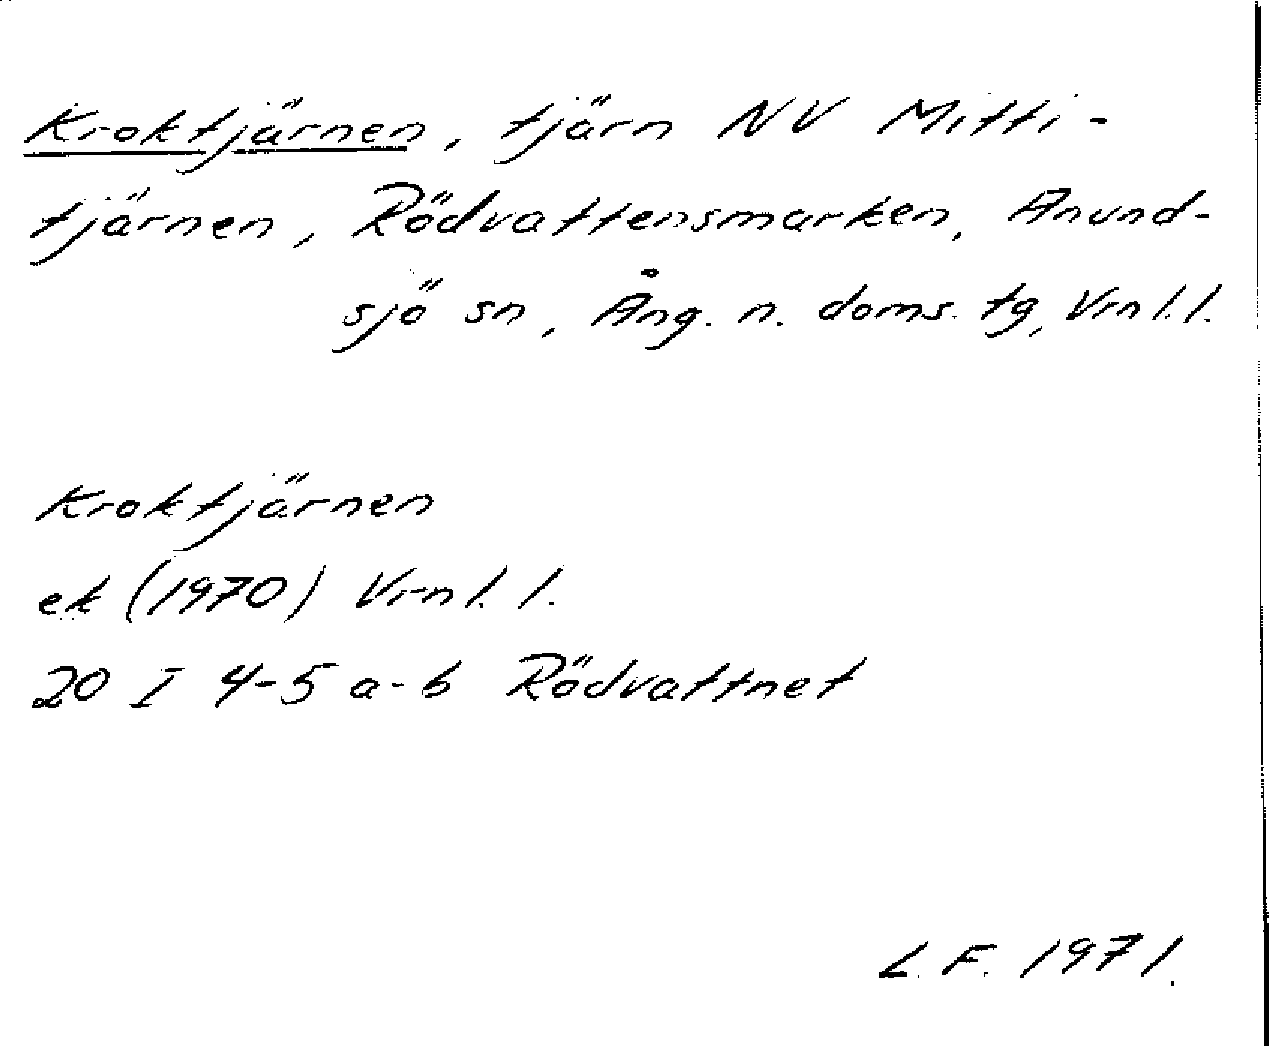 Kroktjärnen, tjärn NV Mitti-
tjärnen, Rödvattensmarken, Anund-
sjö sn, Ång. n. doms. tg, Vrnl. l.
Kroktjärnen
ek (1970) Vrnl. l.
20 I 4-5 a-b Rödvattnet
L. F. 1971.